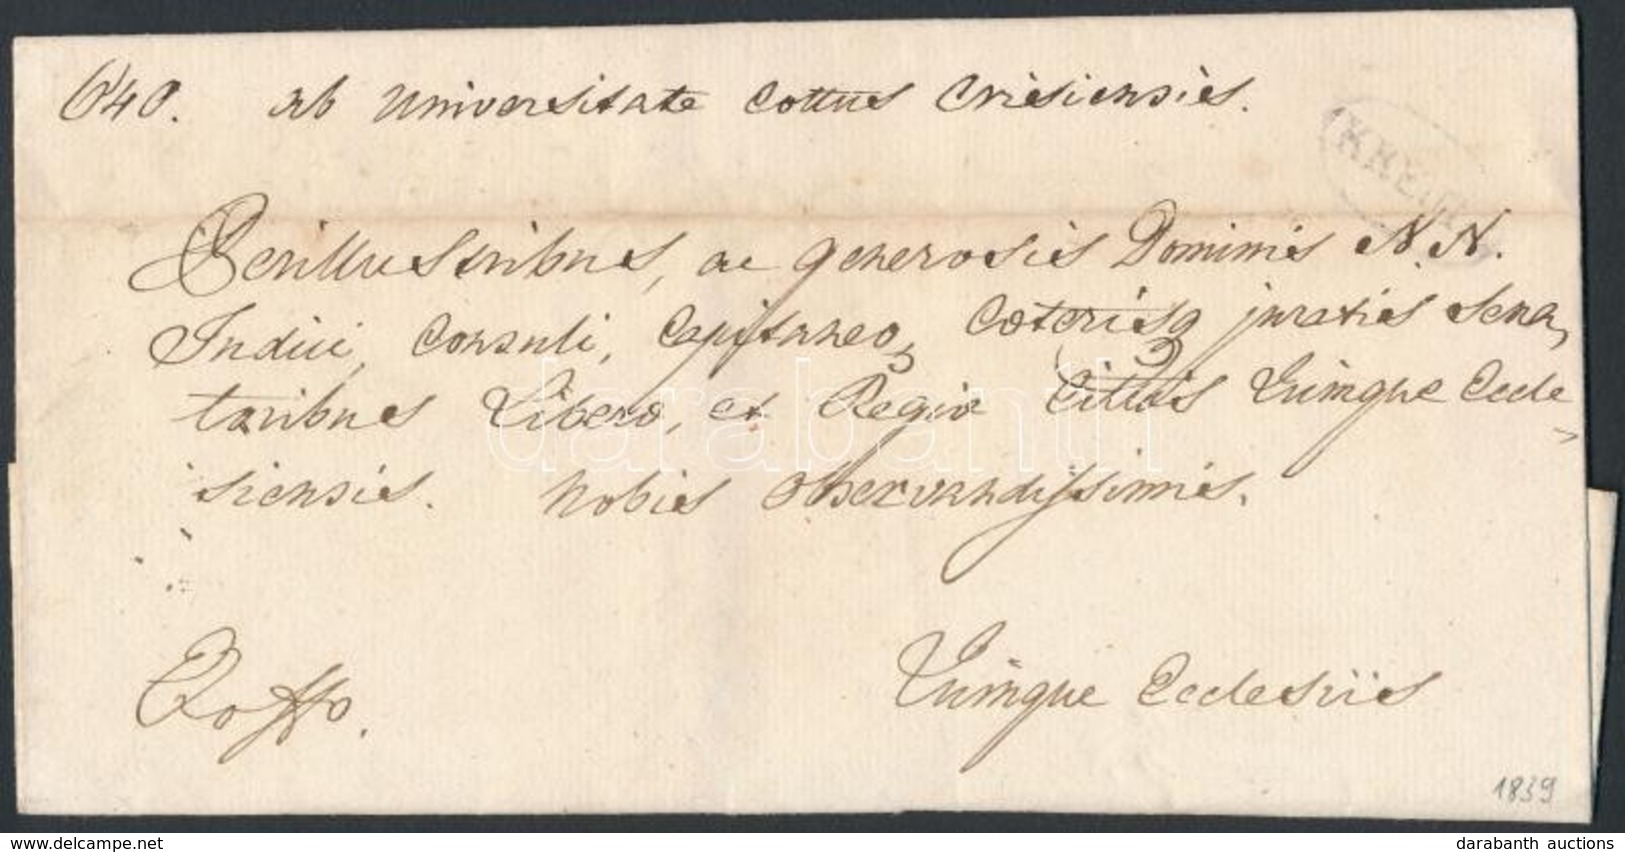 640. ab Universitate Cottus Crisiensis.
Perillustribus, ac generosis Dominis N.N.
Iudici, Consuli, Capitaneo, Coeterisq juratis Sena,
toribus Liberae, et Regiae Cittis Quinque Eccle
siensis. Nobis Observandissimis.
Quinque Ecclesiis
1839
darabanth
delcampe.net
darabanth auctions